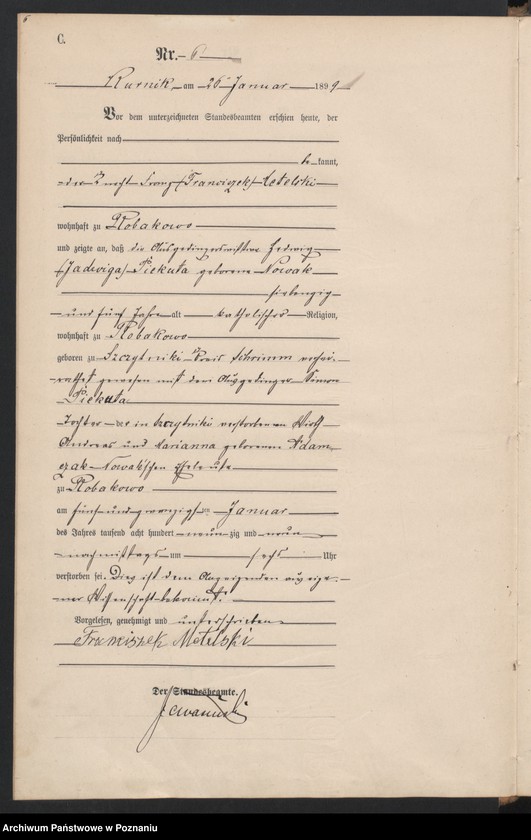 C.
Nr. 6
Kurnik, am 26 Januar 1899
Vor dem unterzeichneten Standesbeamten erschien heute, der
Persönlichkeit nach
be kannt,
der Knecht Franz (Franciszek) Metelski
wohnhaft zu Robakowo
und zeigte an, daß die Ausgedingerswittwe Hedwig
(Jadwiga) Piekuta geborene Nowak
siebenzig
und fünf Jahre alt katholischer Religion,
wohnhaft zu Robakowo
geboren zu Szczytniki Kreis Schrimm verhei-
rathet gewesen mit dem Ausgedinger Simon
Piekuta
Tochter der in Szczytniki verstorbenen Wirth
Andreas und Marianna geborenen Adam
czak Nowak'schen Eheleute
zu Robakowo
am fünf und zwanzigsten Januar
des Jahres tausend acht hundert neun zig und neun
nachmittags um sechs Uhr
verstorben sei. Dies ist dem Anzeigenden aus eige-
ner Wissenschaft bekannt.
Vorgelesen, genehmigt und unterschrieben
Franciszek Metelski
Der Standesbeamte.
Archiwum Państwowe w Poznaniu